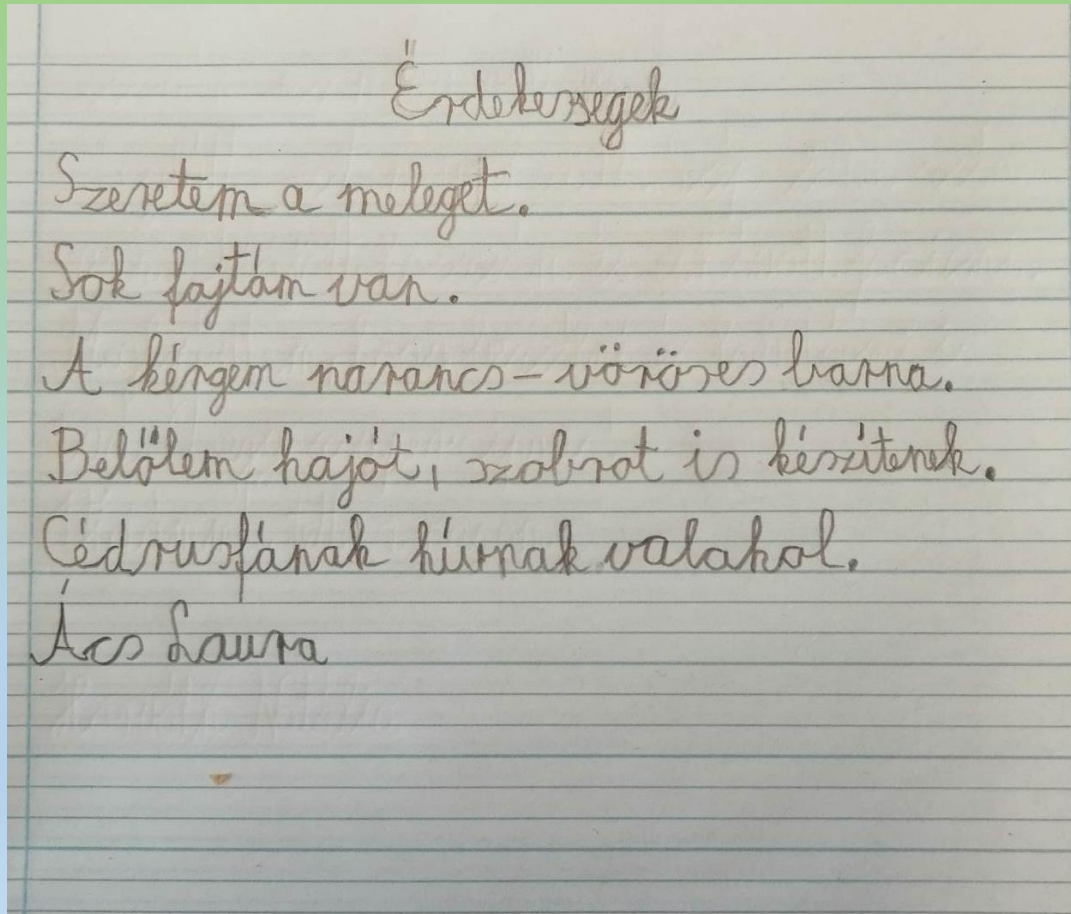 Érdekessegek
Szeretem a meleget.
Sok fajtám van.
A kérgem narancs-vöröses barna.
Belőlem hajót, szobrot is készítenek.
Cédrusfának hívnak valahol.
Ács Laura